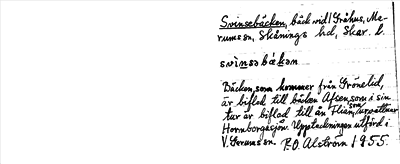 Svinsebäcken, bäck vid Gråhus, Ma-
rumssn, Skånings hd, Skar. l.
svinsəbäkən
Bäcken, som kommer från Grönelid,
är biflod till bäcken Afsen, som i sin
tur är biflod till ån Flian, som
Hornborgasjön. Uppteckningen utförd i
V. Gerumssn. P.O. Alström 1955.